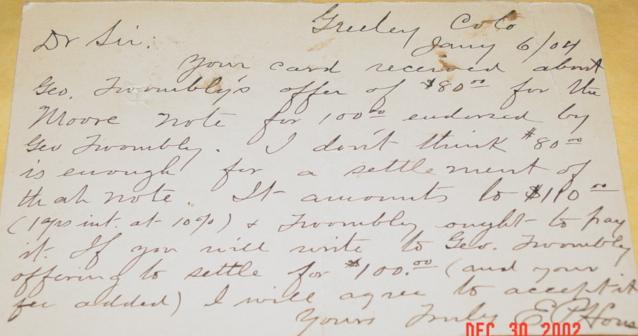 Greeley Colo
Jany 6/04
Dr Sir:
Your card received about
Geo. Twombly's offer of $80⁰⁰ for the
Moore Note for 100⁰⁰ endorsed by
Geo Twombly. I don't think $80⁰⁰
is enough for a settlement of
that note. It amounts to $110⁰⁰
(1 yrs int. at 10%) & Twombly ought to pay
it. If you will write to Geo. Twombly
offering to settle for $100.⁰⁰ (and your
fee added) I will agree to accept it
Yours Truly E.P.
DEC 30 2002